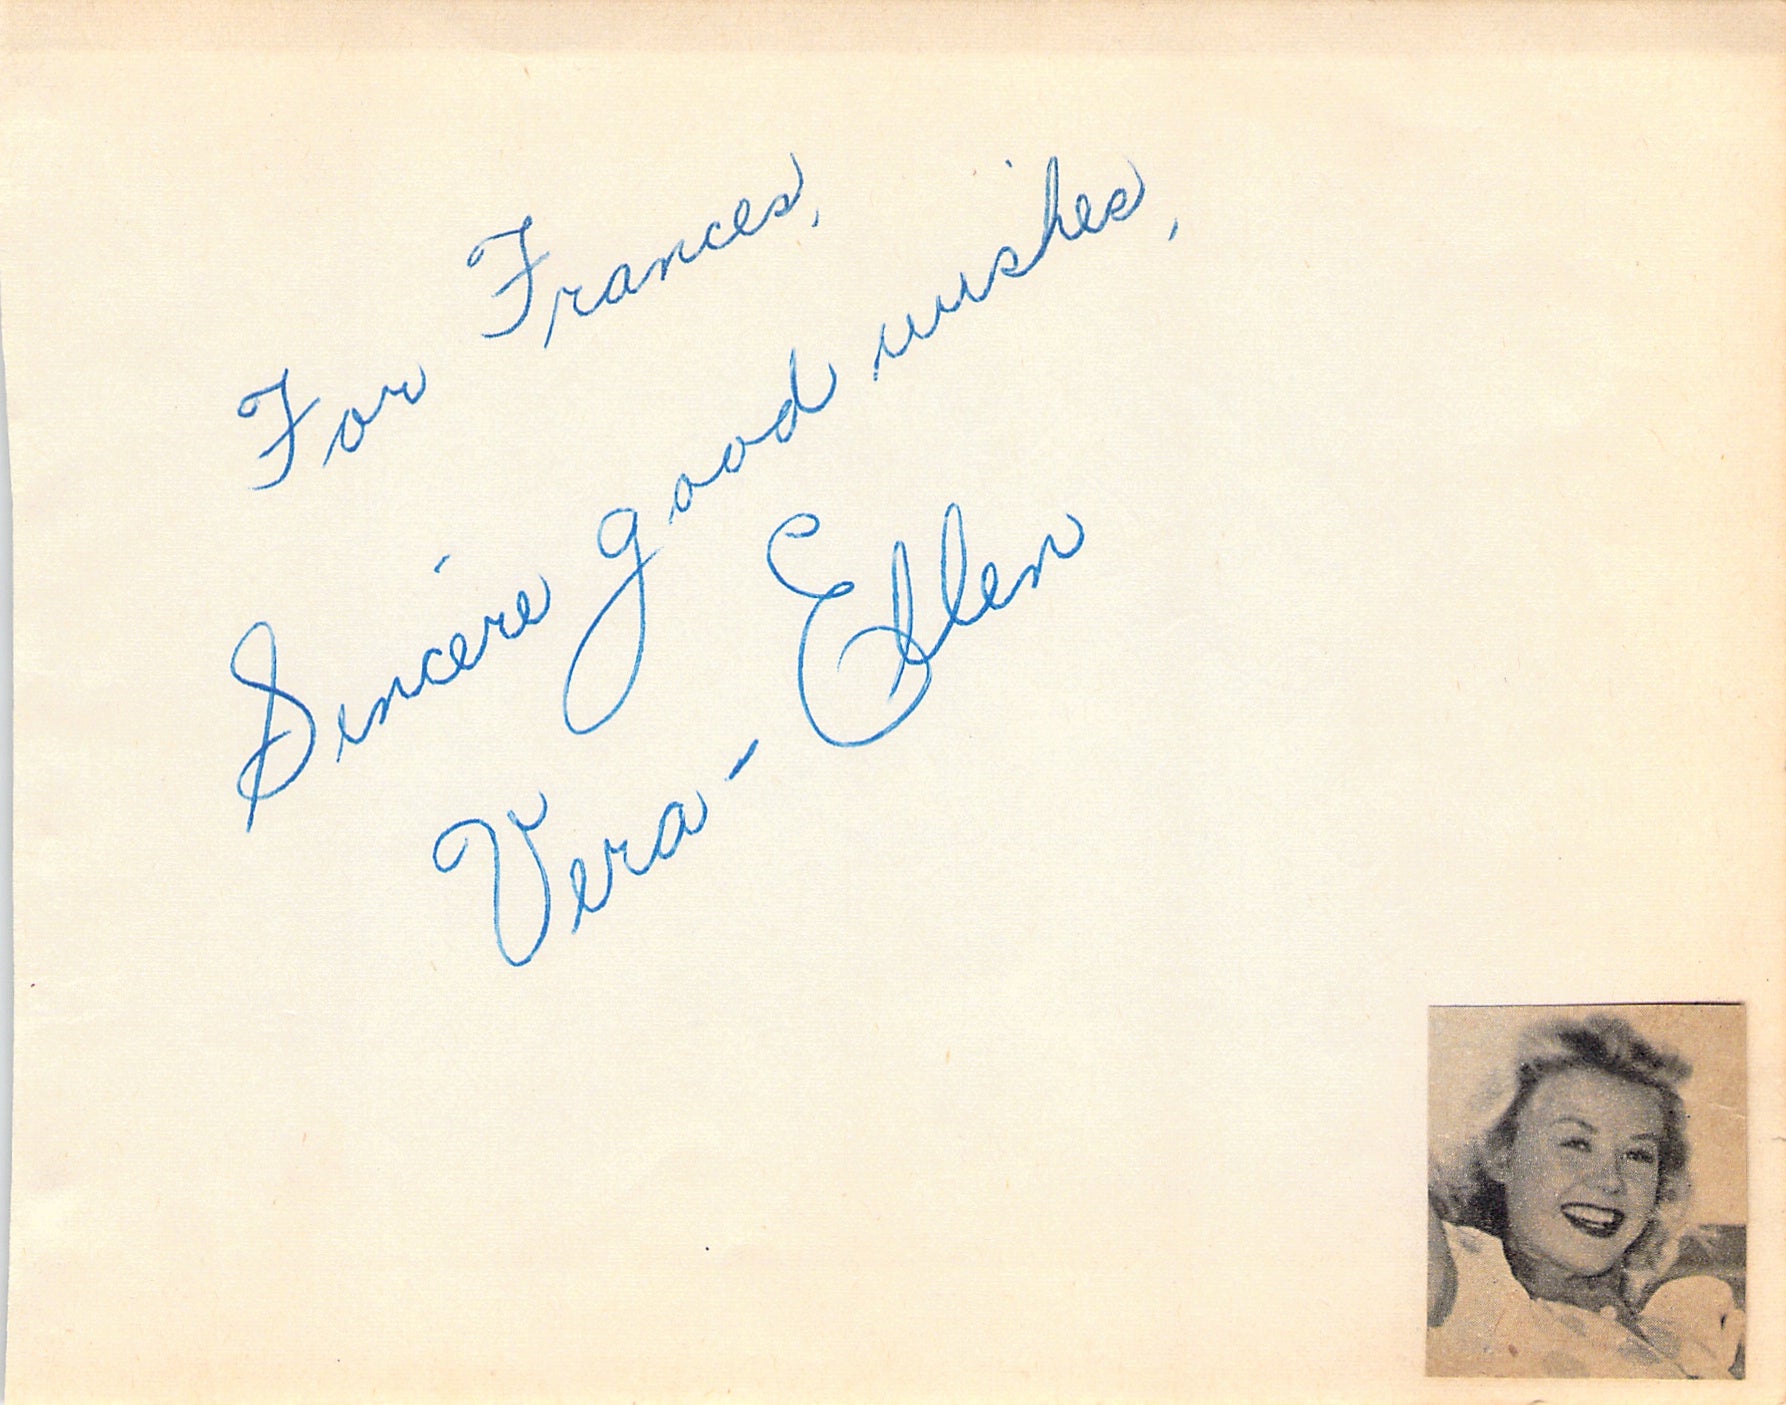 For Frances,
Sincere good wishes,
Vera-Ellen